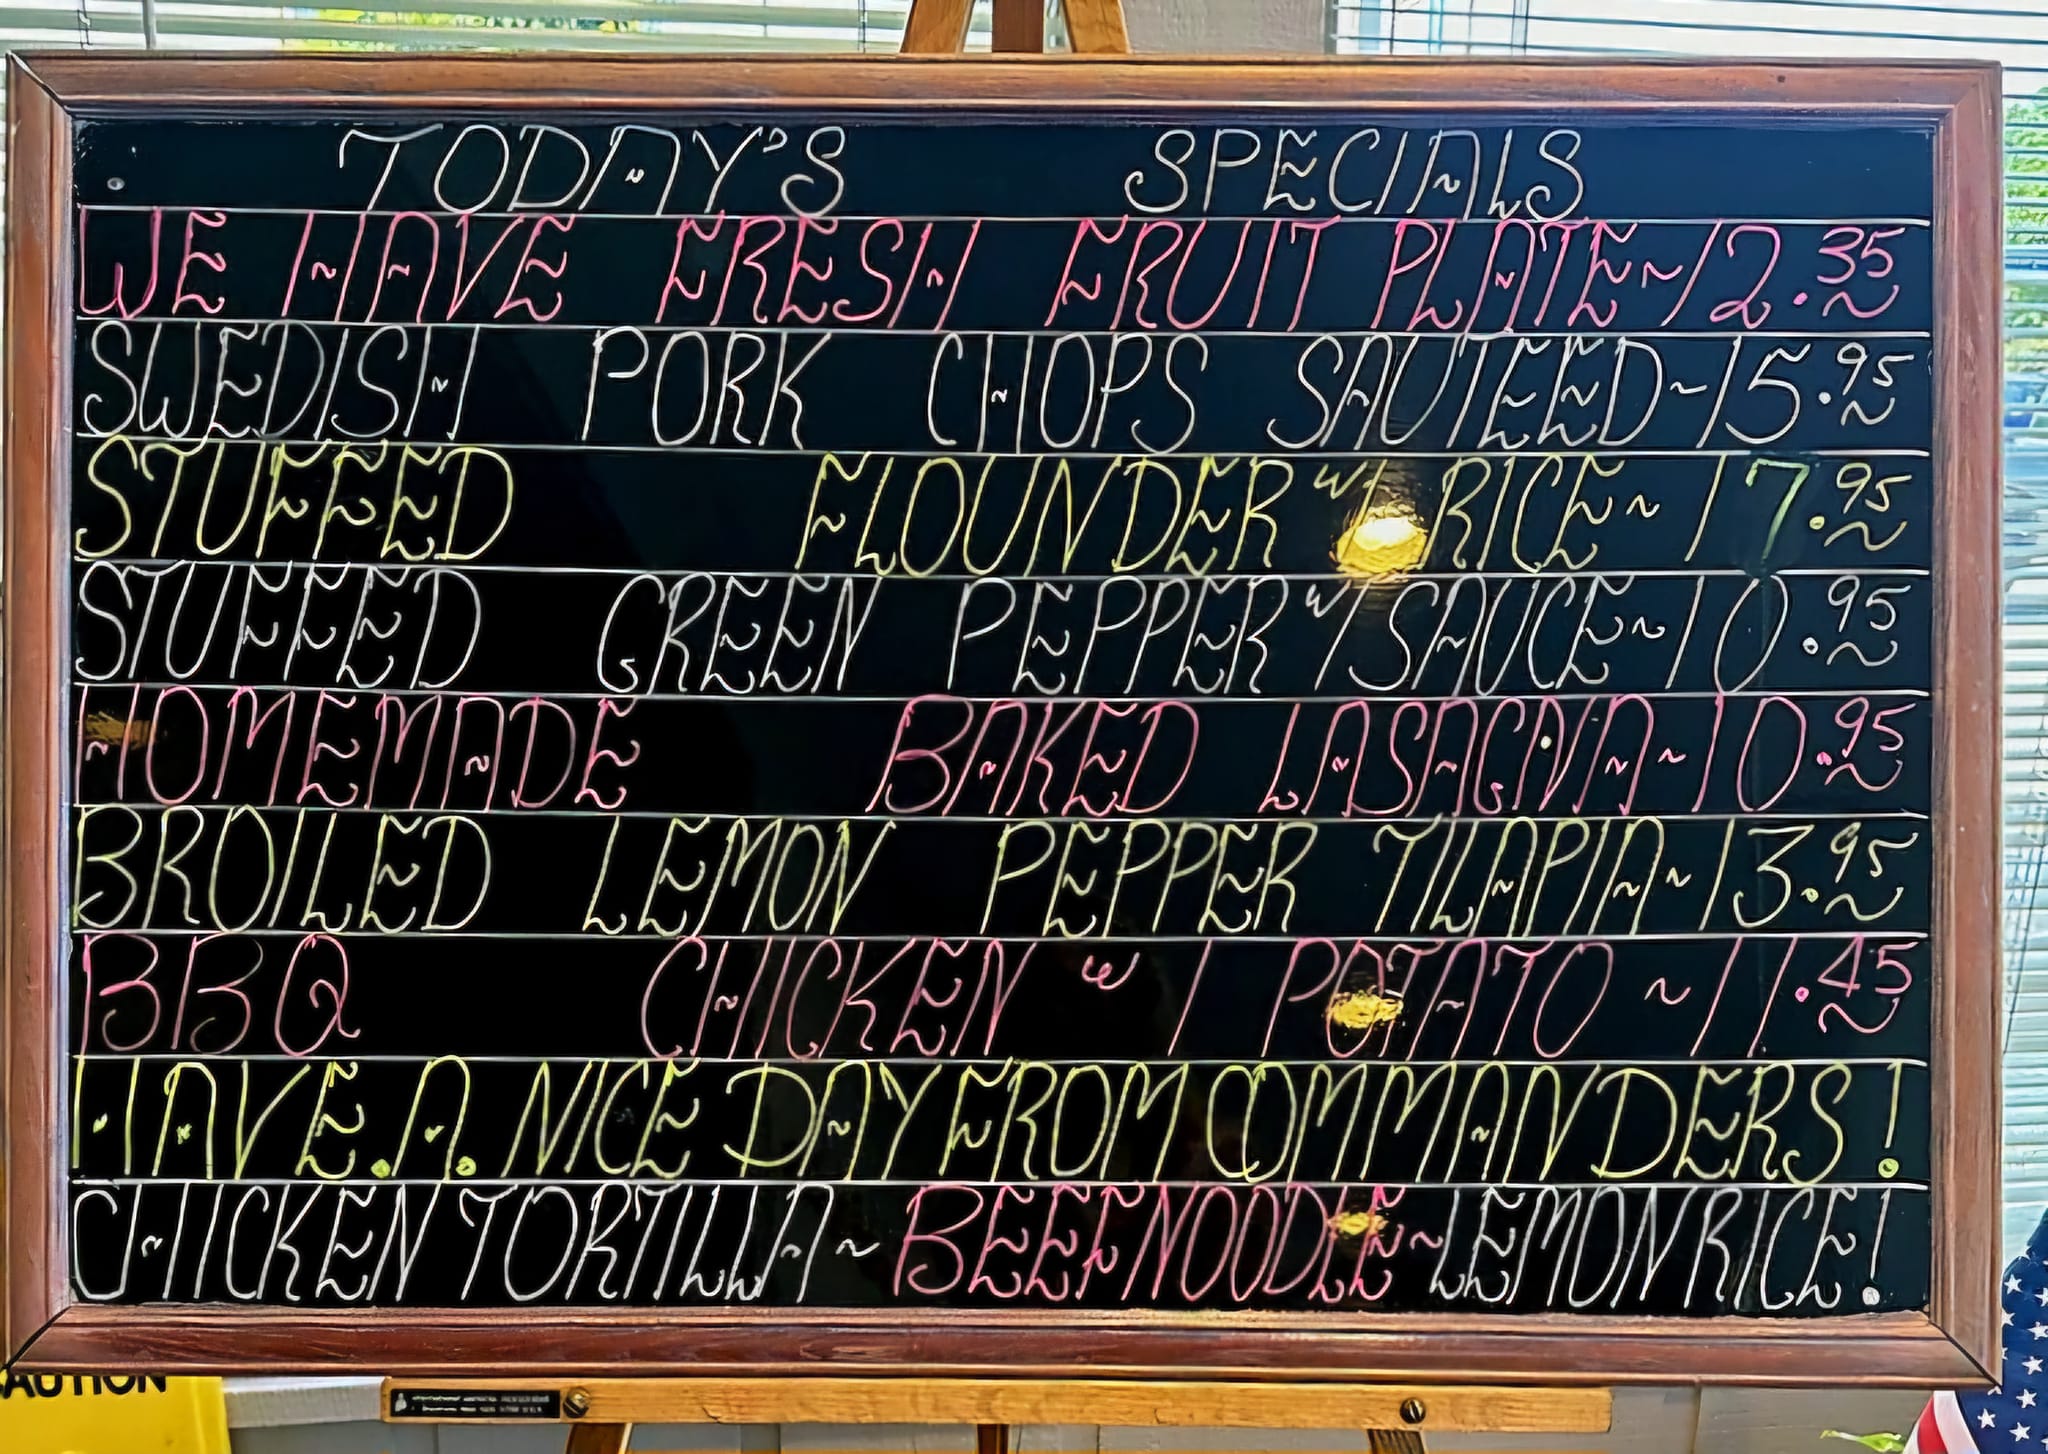 TODAY'S SPECIALS
WE HAVE FRESH FRUIT PLATE ~ 12.35
SWEDISH PORK CHOPS SAUTEED ~ 15.95
STUFFED FLOUNDER W/ RICE ~ 17.95
STUFFED GREEN PEPPER W/ SAUCE ~ 10.95
HOMEMADE BAKED LASAGNA ~ 10.95
BROILED LEMON PEPPER TILAPIA ~ 13.95
BBQ CHICKEN W/ POTATO ~ 11.45
HAVE.A.NICE DAY FROM COMMANDERS!
CHICKEN TORTILLA ~ BEEF NOODLE ~ LEMON RICE!
CAUTION